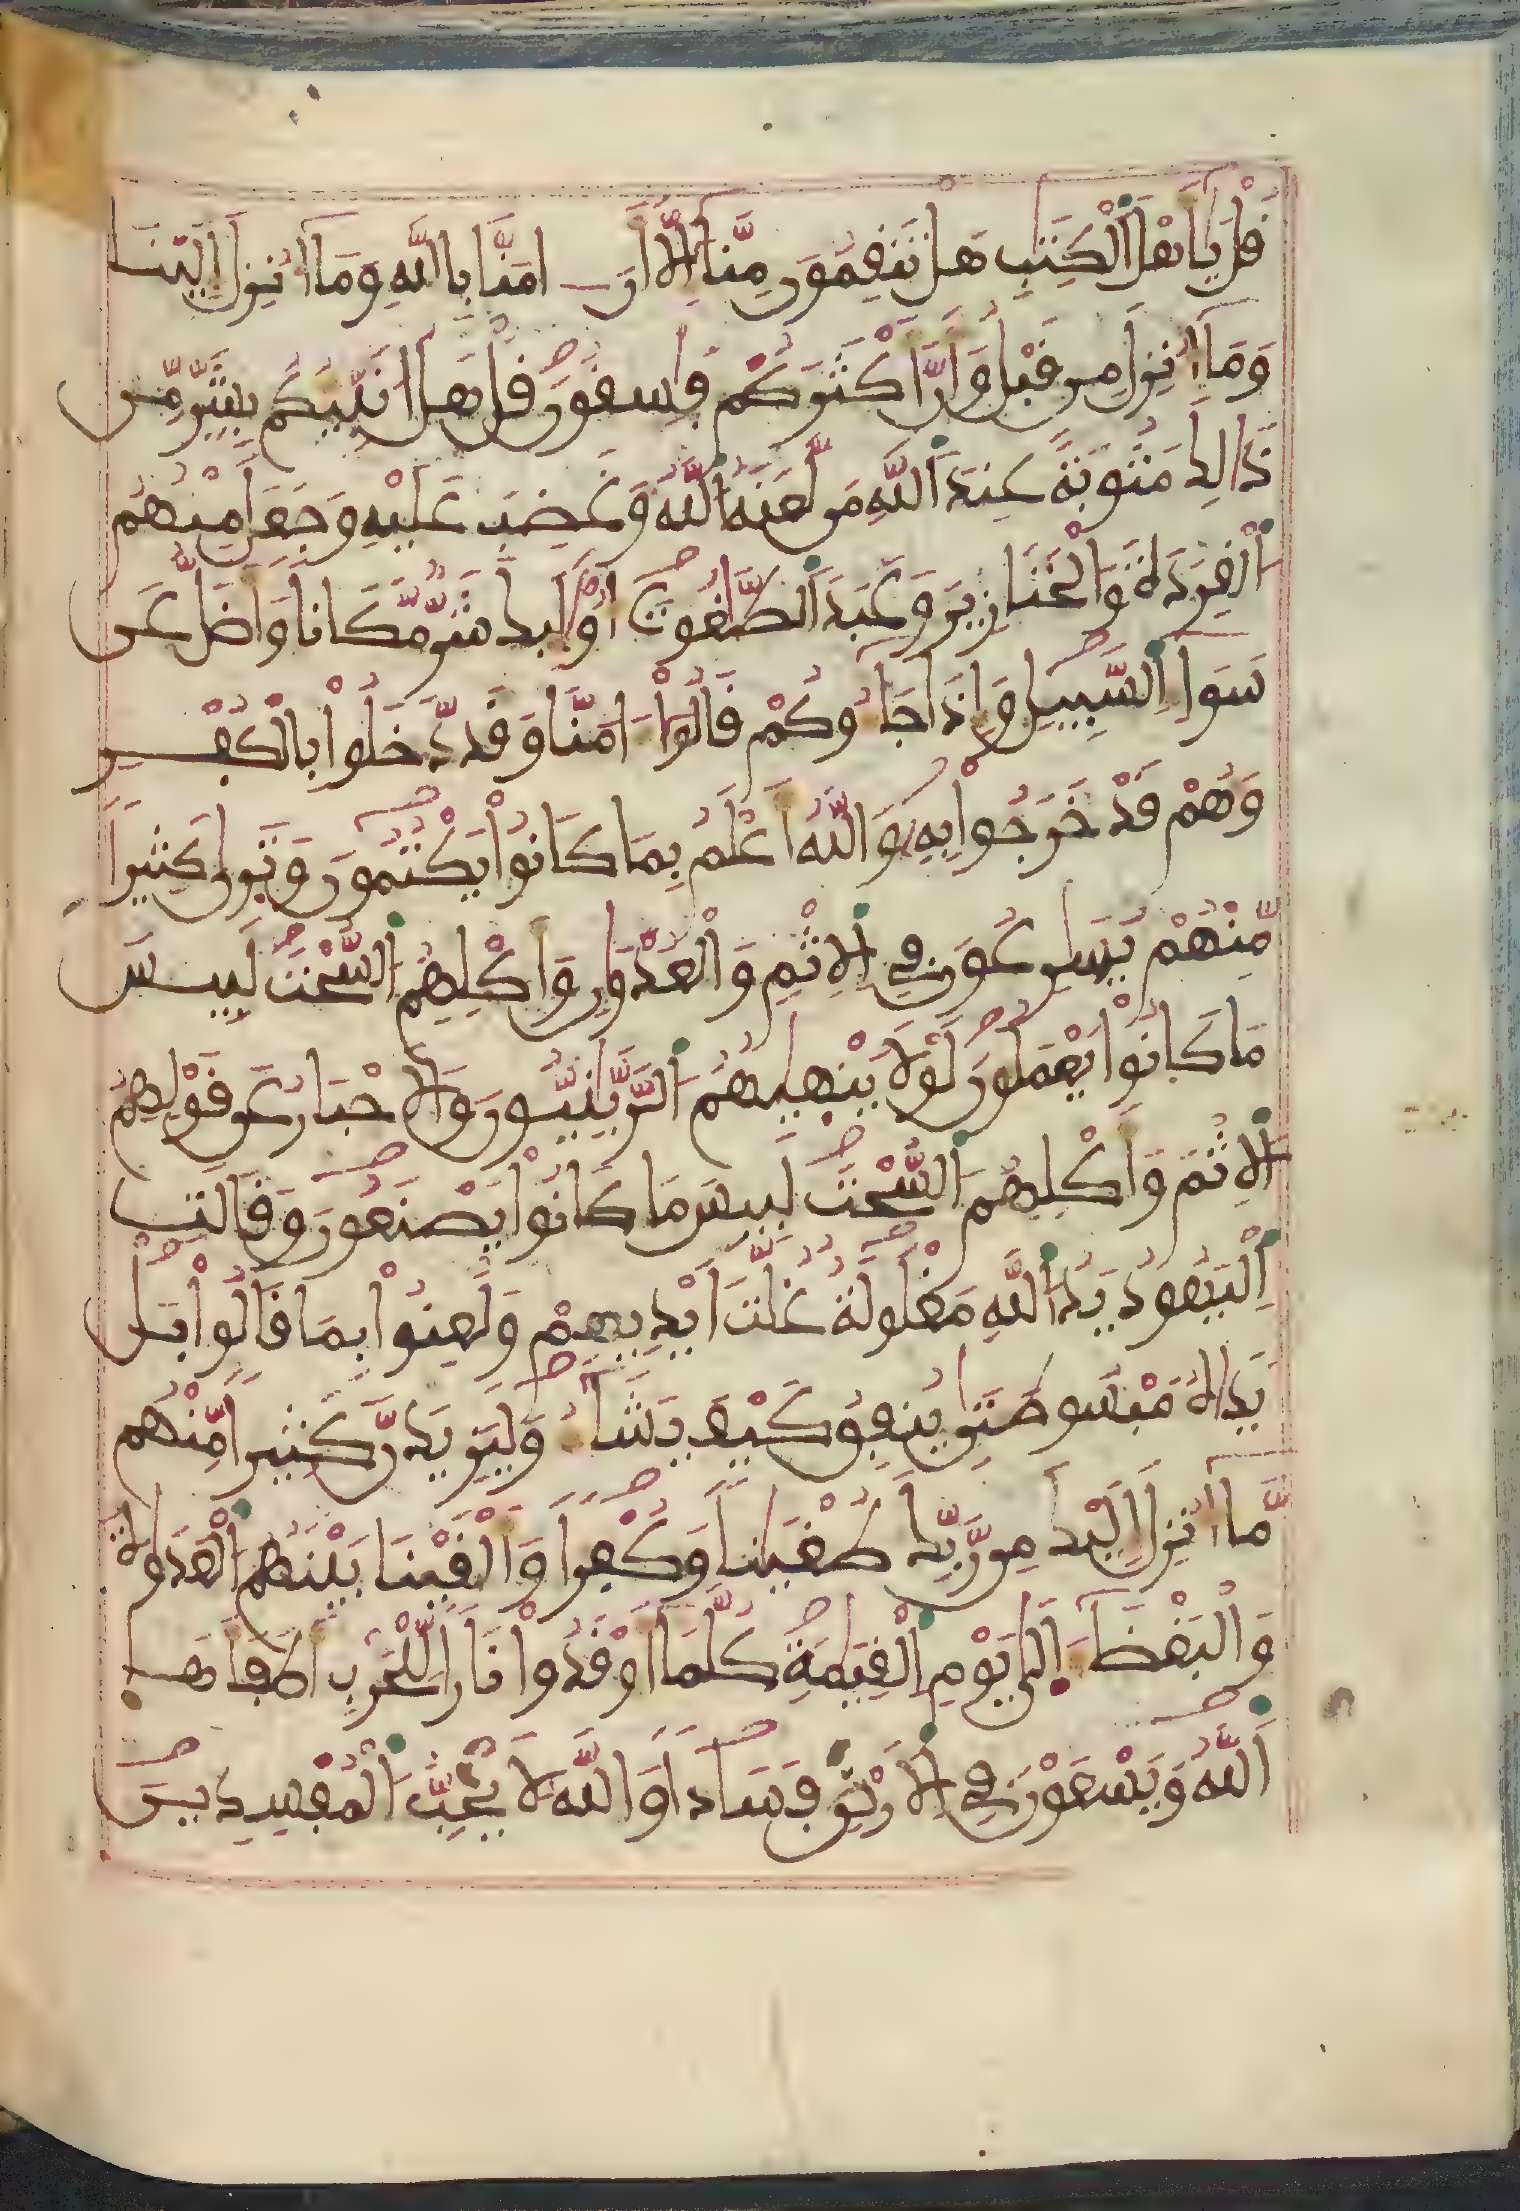 قُلْ يَٰأَهْلَ اَ۬لْكِتَٰبِ هَلْ تَنقِمُونَ مِنَّا إِلَّا أَنَ اٰمَنَّا بِاللَّهِ وَمَا أُنزِلَ إِلَيْنَا
وَمَا أُنزِلَ مِن قَبْلُ وَأَنَّ أَكْثَرَكُمْ فَٰسِقُونَ قُلْ هَلُ انَبِّئُكُم بِشَرٍّ مِّن
ذَالِكَ مَثُوبَةً عِندَ اَ۬للَّهِ مَن لَّعَنَهُ اُ۬للَّهُ وَغَضِبَ عَلَيْهِ وَجَعَلَ مِنْهُمُ
اُ۬لْقِرَدَةَ وَالْخَنَازِيرَ وَعَبَدَ اَ۬لطَّٰغُوتَ أُوْلَٰئِكَ شَرٌّ مَّكَانًا وَأَضَلُّ عَن
سَوَآءِ اِ۬لسَّبِيلِ وَإِذَا جَآءُوكُمْ قَالُوا ءَامَنَّا وَقَد دَّخَلُوا بِالْكُفْرِ
وَهُمْ قَدْ خَرَجُوا بِهِ وَاللَّهُ أَعْلَمُ بِمَا كَانُوا يَكْتُمُونَ وَتَرَىٰ كَثِيرًا
مِّنْهُمْ يُسَٰرِعُونَ فِي اِ۬لْإِثْمِ وَالْعُدْوَٰنِ وَأَكْلِهِمُ اُ۬لسُّحْتَ لَبِيسَ
مَا كَانُوا يَعْمَلُونَ لَوْلَا يَنْهَيٰهُمُ اُ۬لرَّبَّٰنِيُّونَ وَالْأَحْبَارُ عَن قَوْلِهِمُ
اُ۬لْإِثْمَ وَأَكْلِهِمُ اُ۬لسُّحْتَ لَبِيسَ مَا كَانُوا يَصْنَعُونَ وَقَالَتِ
اِ۬لْيَهُودُ يَدُ اُ۬للَّهِ مَغْلُولَةٌ غُلَّتَ اَيْدِيهِمْ وَلُعِنُوا بِمَا قَالُوا بَلْ
يَدَاهُ مَبْسُوطَتَٰنِ يُنفِقُ كَيْفَ يَشَآءُ وَلَيَزِيدَنَّ كَثِيرًا مِّنْهُم
مَّا أُنزِلَ إِلَيْكَ مِن رَّبِّكَ طُغْيَٰنًا وَكُفْرًا وَأَلْقَيْنَا بَيْنَهُمُ اُ۬لْعَدَٰوَةَ
وَالْبَغْضَآءَ اِ۪لَىٰ يَوْمِ اِ۬لْقِيَٰمَةِ كُلَّمَا أَوْقَدُوا نَارًا لِّلْحَرْبِ أَطْفَأَهَا
اَ۬للَّهُ وَيَسْعَوْنَ فِي اِ۬لْأَرْضِ فَسَادًا وَاللَّهُ لَا يُحِبُّ اُ۬لْمُفْسِدِينَ